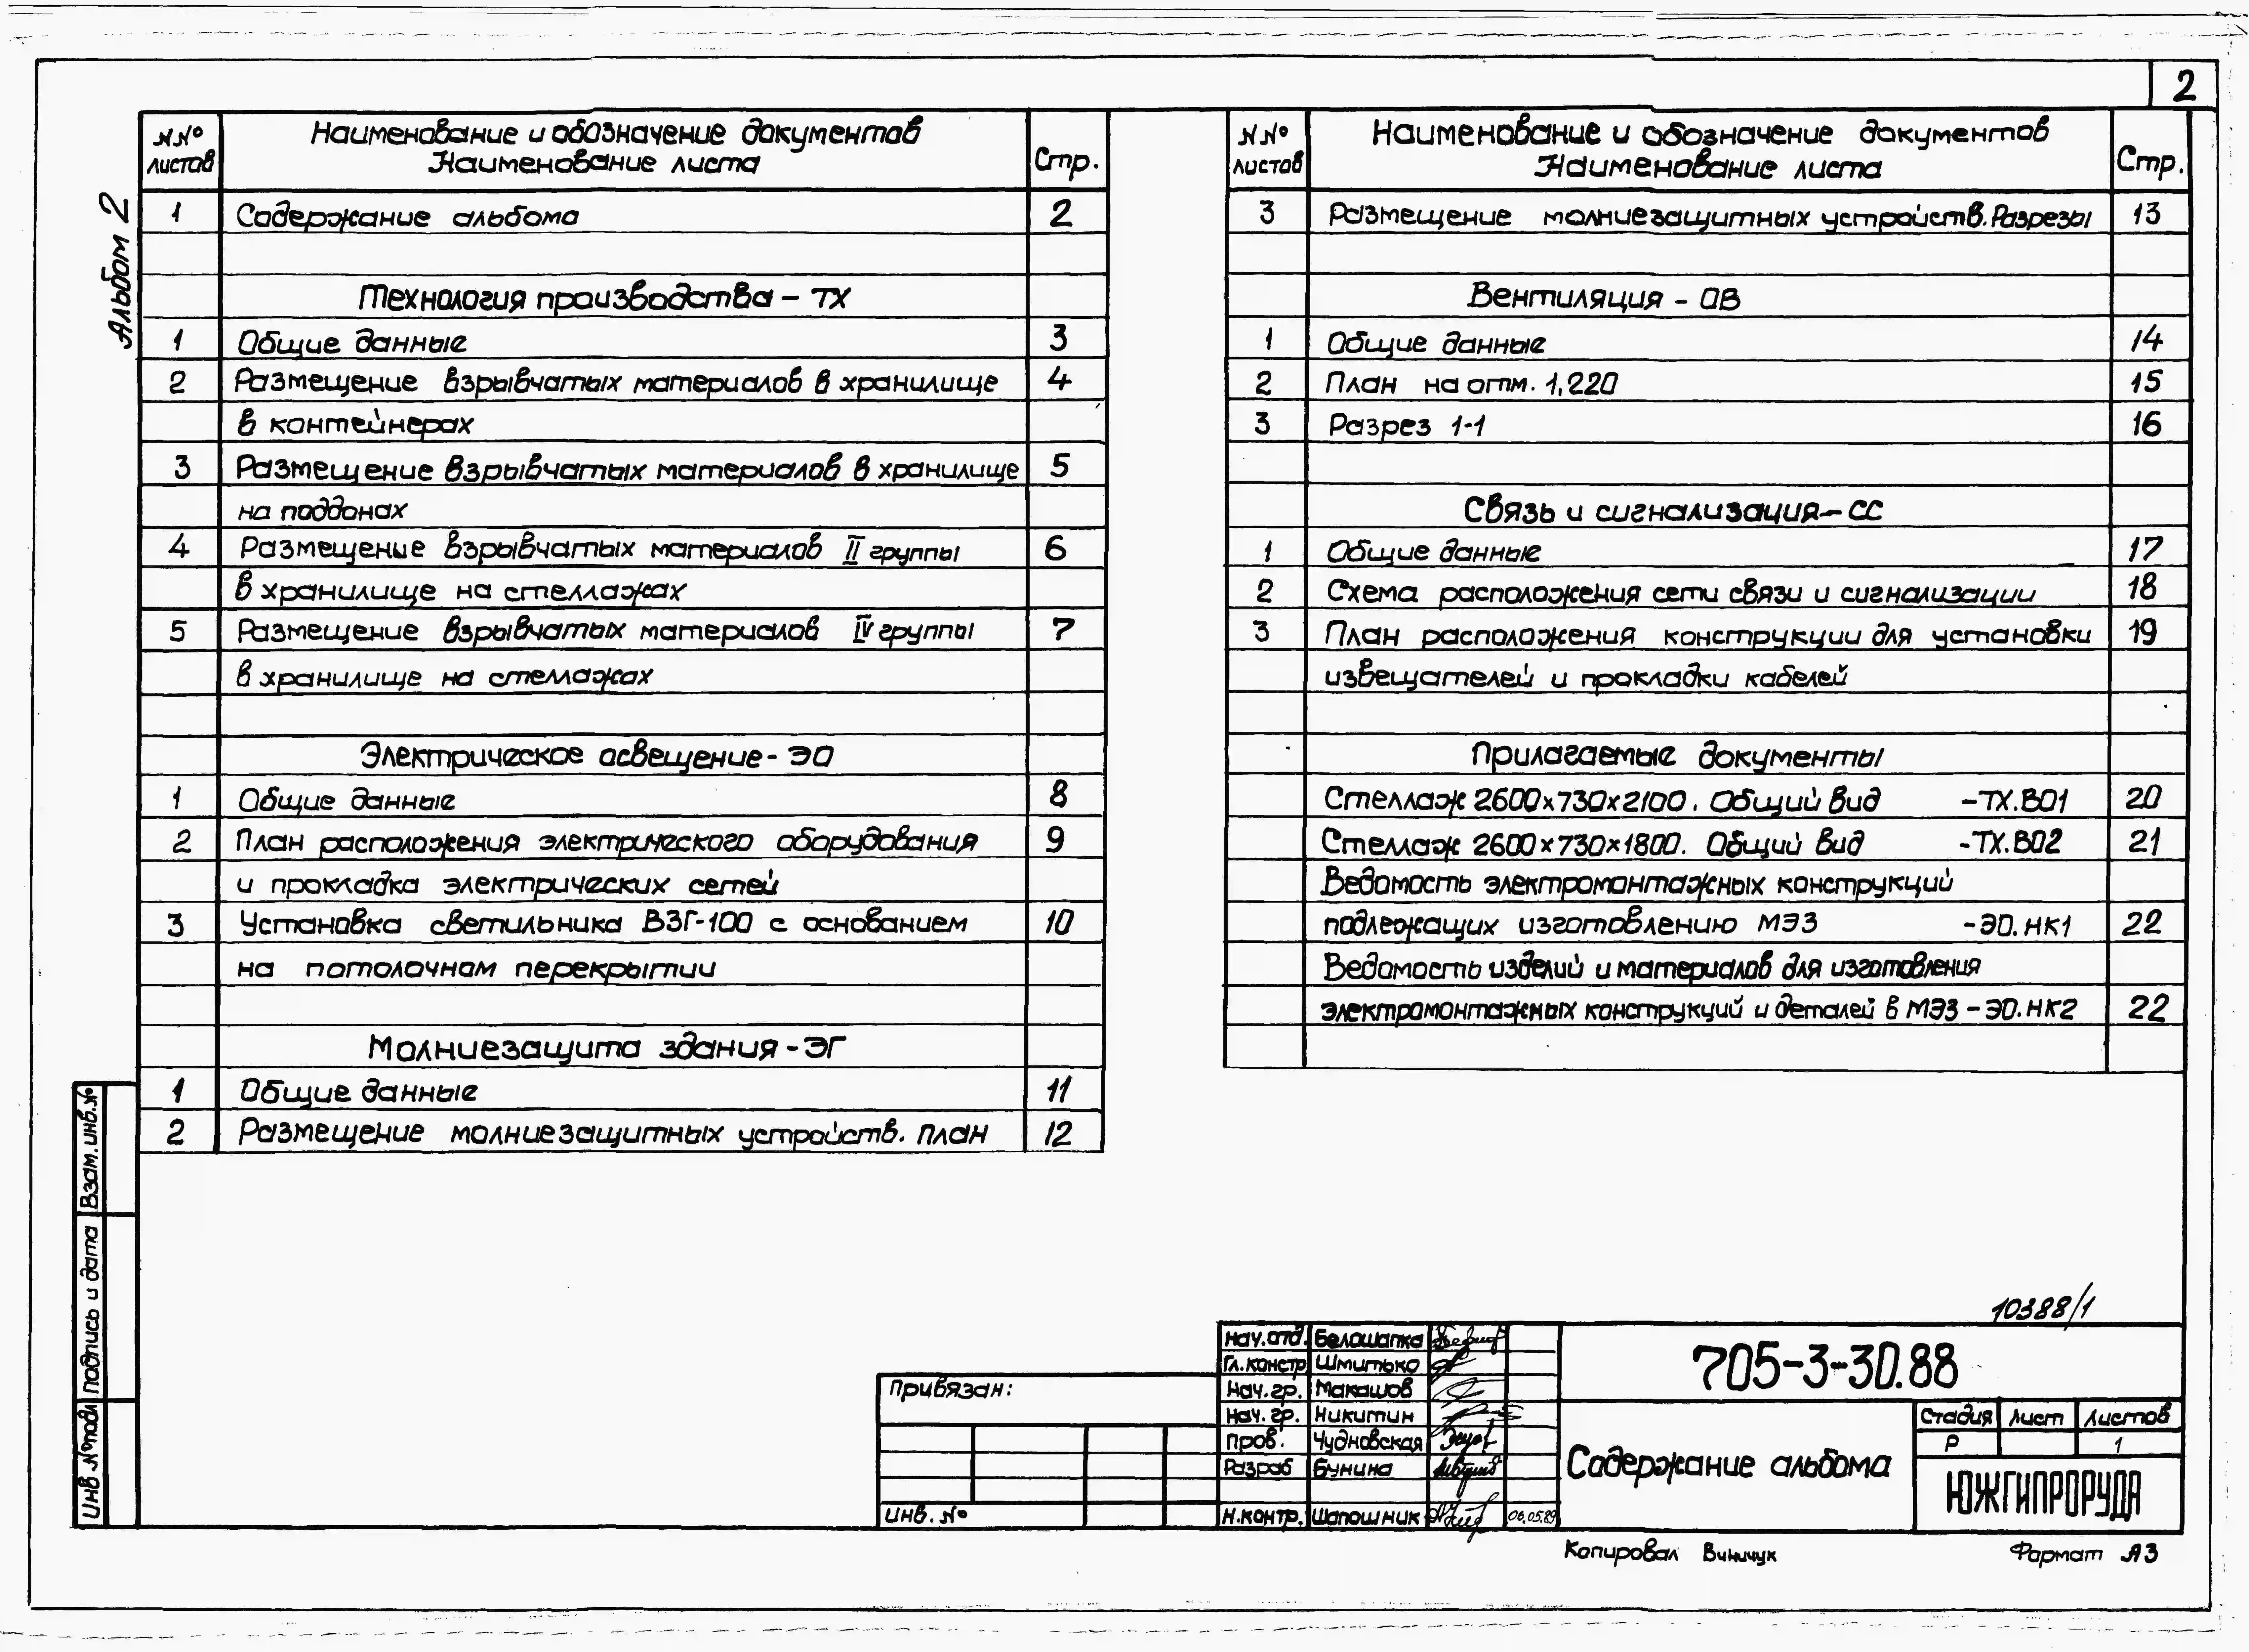 2
Альбом 2
№№ листов
Наименование и обозначение документов
Наименование листа
Стр.
1 Содержание альбома 2
Технология производства - ТХ
1 Общие данные 3
2 Размещение взрывчатых материалов в хранилище 4
в контейнерах
3 Размещение взрывчатых материалов в хранилище 5
на поддонах
4 Размещение взрывчатых материалов II группы 6
в хранилище на стеллажах
5 Размещение взрывчатых материалов IV группы 7
в хранилище на стеллажах
Электрическое освещение - ЭО
1 Общие данные 8
2 План расположения электрического оборудования 9
и прокладка электрических сетей
3 Установка светильника ВЗГ-100 с основанием 10
на потолочном перекрытии
Молниезащита здания - ЭГ
1 Общие данные 11
2 Размещение молниезащитных устройств. План 12
№№ листов
Наименование и обозначение документов
Наименование листа
Стр.
3 Размещение молниезащитных устройств. Разрезы 13
Вентиляция - ОВ
1 Общие данные 14
2 План на отм. 1,220 15
3 Разрез 1-1 16
Связь и сигнализация - СС
1 Общие данные 17
2 Схема расположения сети связи и сигнализации 18
3 План расположения конструкции для установки 19
извещателей и прокладки кабелей
Прилагаемые документы
Стеллаж 2600х730х2100. Общий вид -ТХ.ВО1 20
Стеллаж 2600х730х1800. Общий вид -ТХ.ВО2 21
Ведомость электромонтажных конструкций
подлежащих изготовлению МЭЗ -ЭО.НК1 22
Ведомость изделий и материалов для изготовления
электромонтажных конструкций и деталей в МЭЗ - ЭО.НК2 22
Взам. инв. №
Подпись и дата
Инв № подл
10388/1
Привязан:
Инв. №
Нач. отд. Белошапка
Гл. констр Шмитько
Нач. гр. Макашов
Нач. гр. Никитин
Пров. Чудновская
Разраб Бунина
Н.контр. Шапошник 06.05.89
705-3-30.88
Содержание альбома
Стадия Лист Листов
Р 1
ЮЖГИПРОРУДА
Копировал Винничук
Формат А3